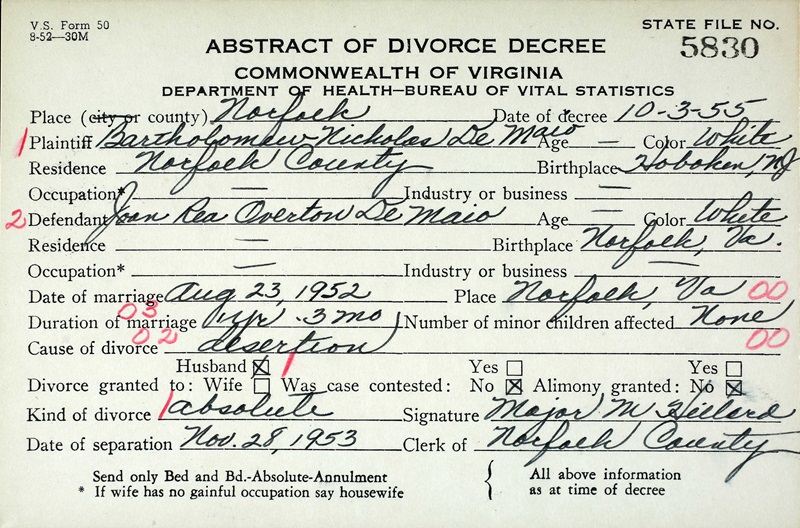 V.S. Form 50
8-52—30M
STATE FILE NO.
5830
ABSTRACT OF DIVORCE DECREE
COMMONWEALTH OF VIRGINIA
DEPARTMENT OF HEALTH—BUREAU OF VITAL STATISTICS
Place (city or county) Norfolk Date of decree 10-3-55
1 Plaintiff Bartholomew Nicholas De Maio Age — Color White
Residence Norfolk County Birthplace Hoboken, NJ
Occupation* — Industry or business —
2 Defendant Joan Rea Overton De Maio Age — Color White
Residence — Birthplace Norfolk, Va.
Occupation* — Industry or business —
Date of marriage Aug 23, 1952 Place Norfolk, Va 00
03
Duration of marriage 1 yr. 3 mo Number of minor children affected None
02 00
Cause of divorce desertion
Husband ☒ / Yes ☐ Yes ☐
Divorce granted to: Wife ☐ Was case contested: No ☒ Alimony granted: No ☒
Kind of divorce / absolute Signature Major M Hillard
Date of separation Nov. 28, 1953 Clerk of Norfolk County
Send only Bed and Bd.-Absolute-Annulment { All above information
* If wife has no gainful occupation say housewife as at time of decree